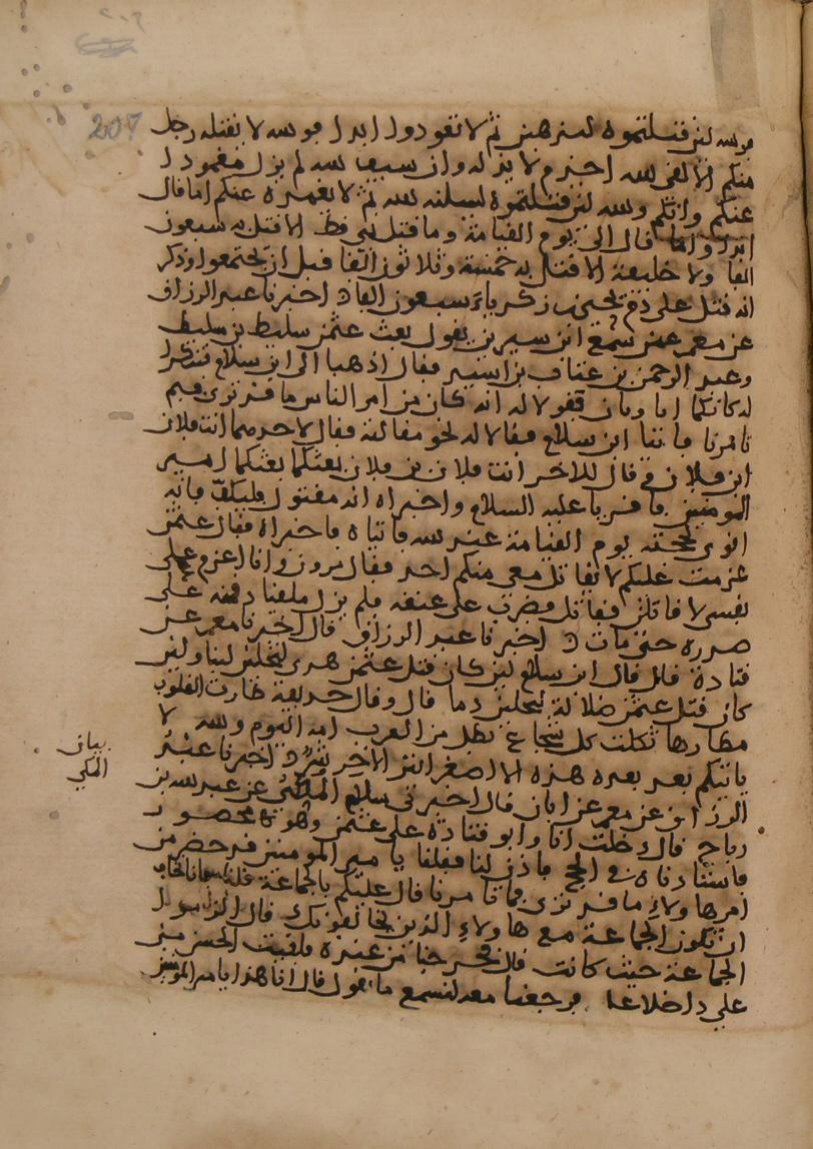 ٢٠٦
207
فوالله لئن قتلتموه ليذهبن ثم لا تعودوا ابدا فوالله لا يقتله رجل
منكم الا لقي الله اجذم لا يد له وان سيف الله لم يزل مغمودا
عنكم وانكم والله لئن قتلتموه ليسلنه الله ثم لا يغمده عنكم اما قال
ابدا واما قال الى يوم القيامة وما قتل نبي قط الا قتل به سبعون
الفا ولا خليفة الا قتل به خمسة وثلاثون الفا قبل ان يجتمعوا وذكر
انه قتل على دم يحيى بن زكرياء سبعون الفا د اخبرنا عبد الرزاق
عن معمر عمن سمع ابن سيرين يقول بعث عثمن سليط بن سليط
وعبد الرحمن بن عتاب بن اسيد فقال اذهبا الى ابن سلام فتنكرا
له كانكما اتاويان فقولا له انه كان من امر الناس ما قد ترى فبم
تامرنا فاتيا ابن سلام فقالا له نحو مقالته فقال لاحدهما انت فلان
ابن فلان وقال للاخر انت فلان بن فلان بعثكما امير
المومنين فاقريا عليه السلام واخبراه انه مقتول فليكف فانه
اقوى لحجته يوم القيامة عند الله فاتياه فاخبراه فقال عثمن
عزمت عليكم لا يقاتل معي منكم احد فقال مروان وانا اعزم على
نفسي لاقاتلن فقاتل فضرب على عنقه فلم يزل ملقيا ذقنه على
صدره حتى مات د اخبرنا عبد الرزاق قال اخبرنا معمر عن
قتادة قال قال ابن سلام لئن كان قتل عثمن هدى لتحلبن لبنا ولئن
كان قتل عثمن ضلالة لتحلبن دما قال وقال حذيفة طارت القلوب
مطارها ثكلت كل شجاع بطل من العرب امه اليوم والله لا
ياتيكم بعد بعده هذه الا اصغر ابتر الاخر شر د اخبرنا عبد
الرزاق عن معمر عن ابان قال اخبرني سليم المكي عن عبد الله بن
رباح قال دخلت انا وابو قتادة على عثمن وهو محصور
فاستاذناه في الحج فاذن لنا فقلنا يا امير المومنين قد حضر من
امر هاولاء ما قد ترى فما تامرنا قال عليكم بالجماعة قلنا فانا نخاف
ان تكون الجماعة مع هاولاء الذين يخالفونك قال الزموا
الجماعة حيث كانت قال فخرجنا من عنده فلقيت الحسن بن
علي داخلا عليه فرجعنا معه لنسمع ما يقول قال انا هذا يا امير المومنين
بيان
المكي